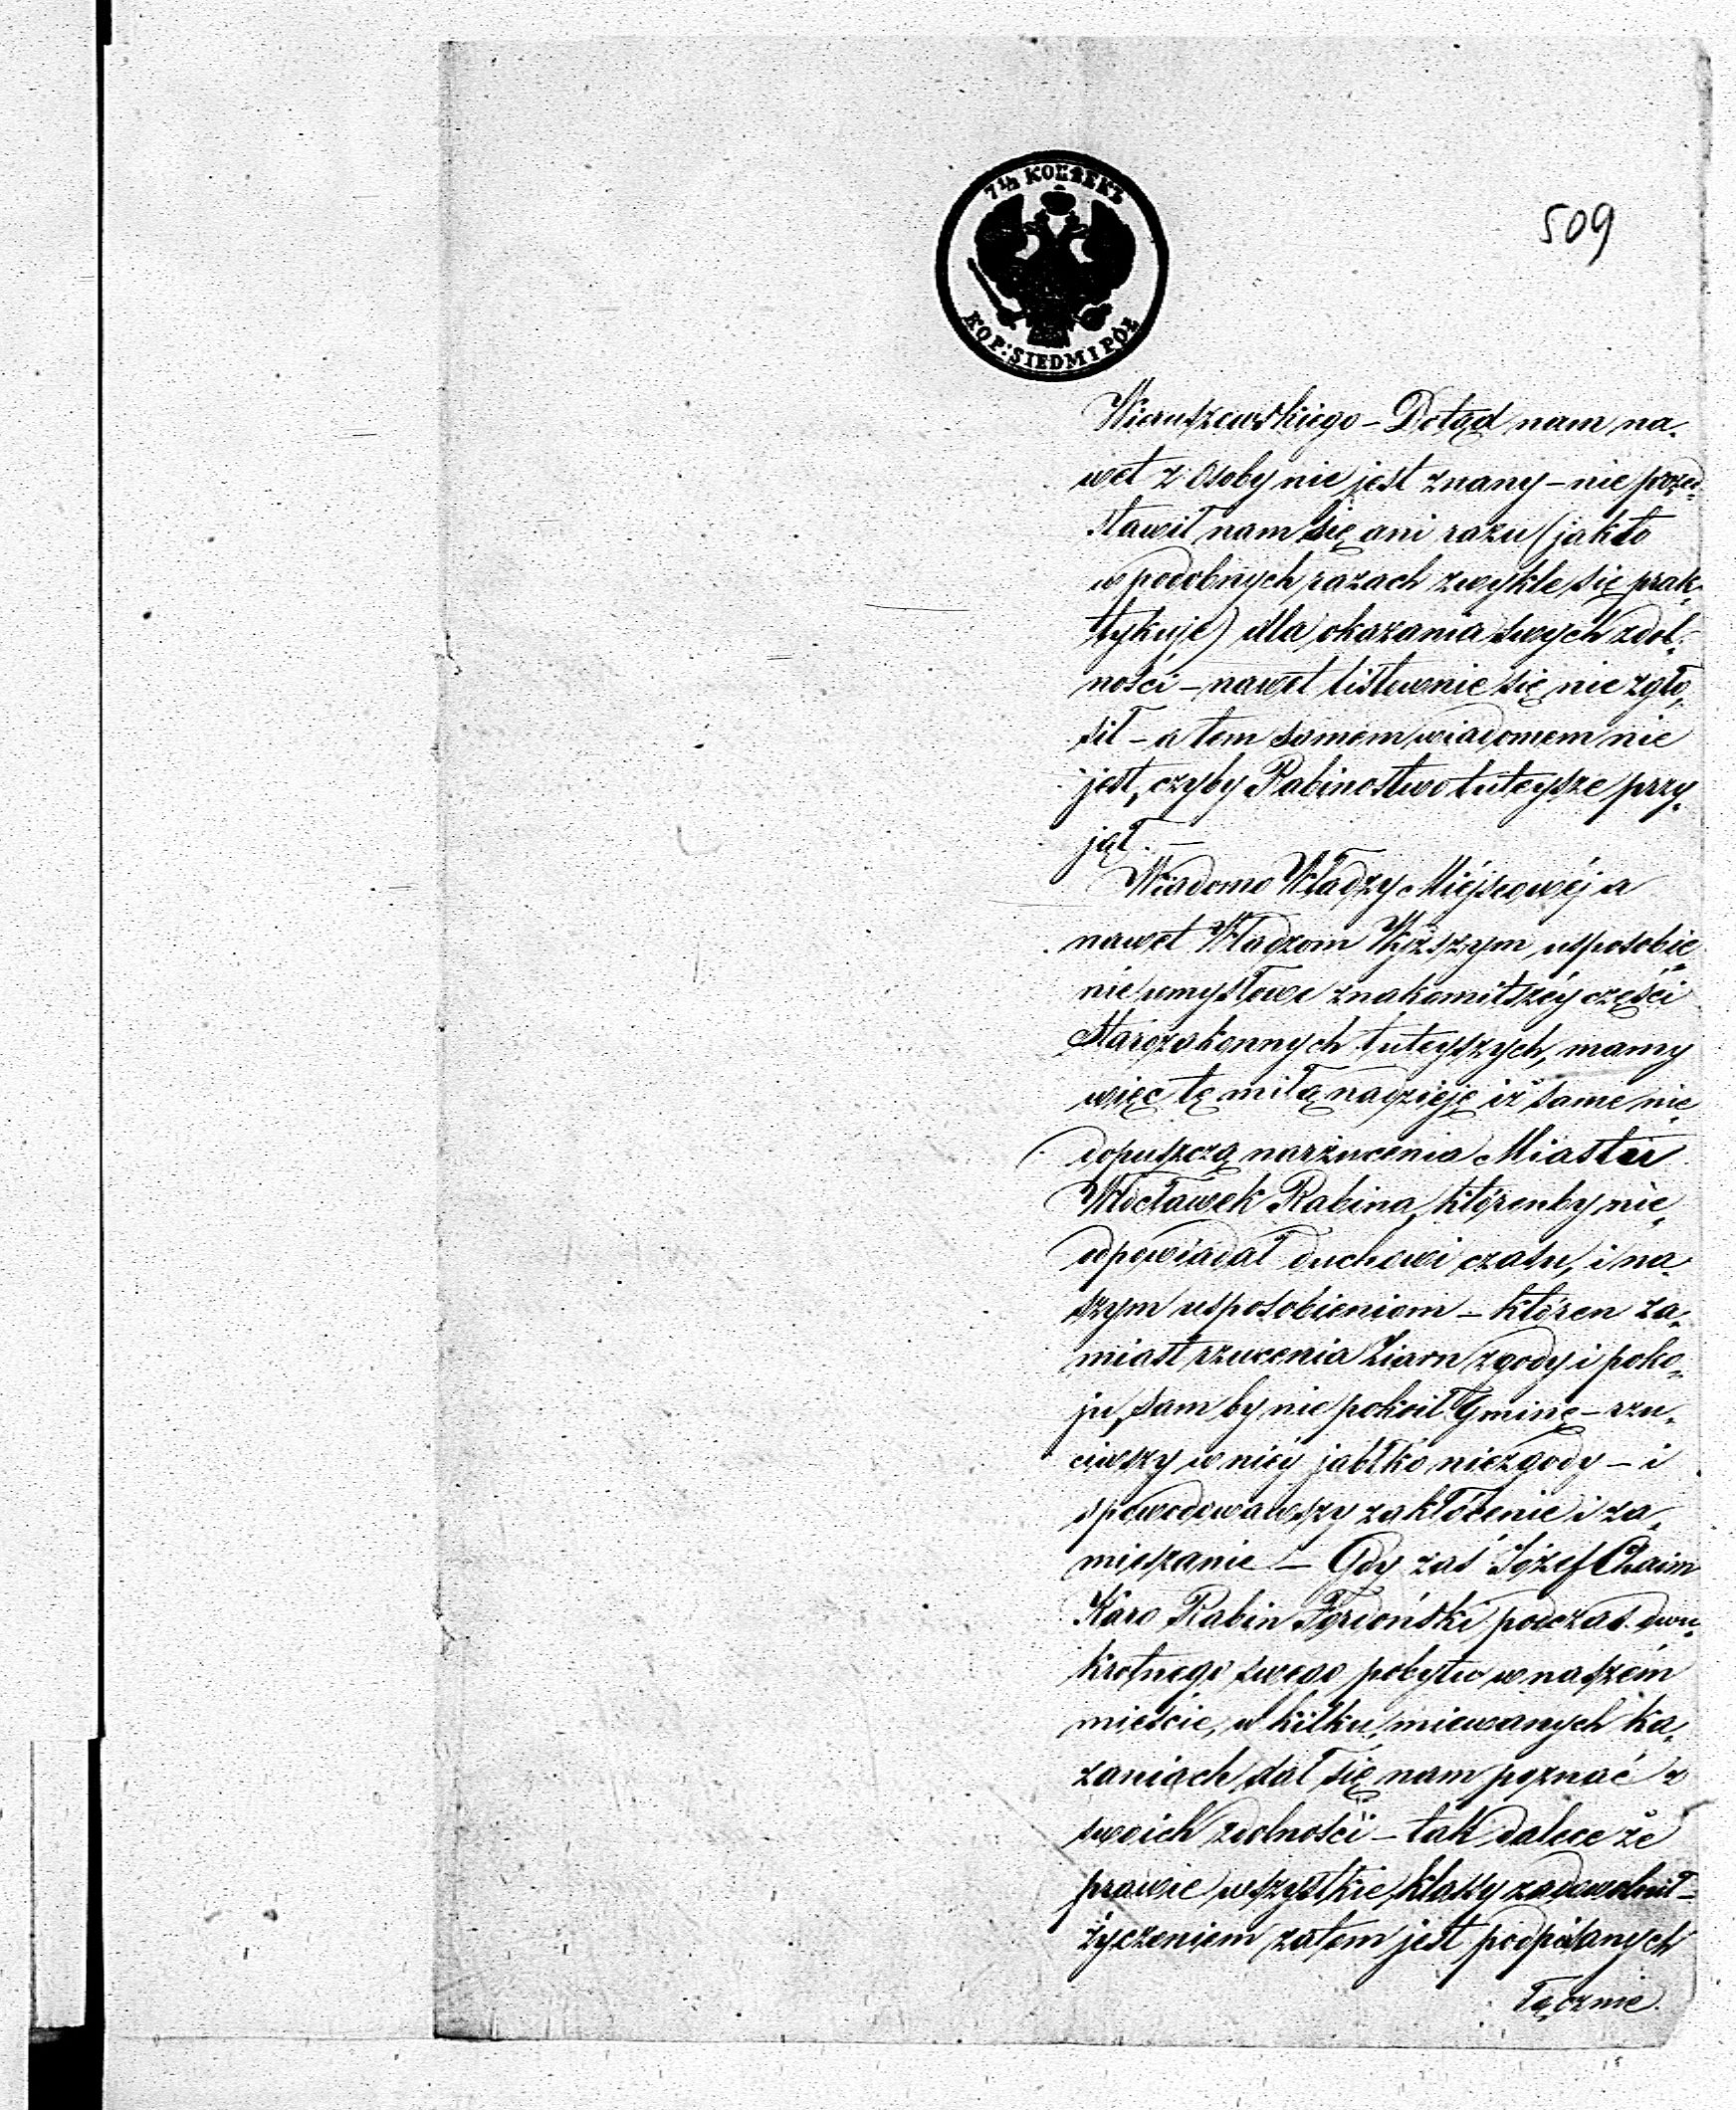 7½ КОПѢЕКЪ
KOP: SIEDM I PÓŁ
509
Wieruszewskiego – Dotąd nam na„
wet z Osoby nie jest znany – nie przed„
stawił nam się ani razu (jak to
w podobnych razach zwykle się prak„
tykuje) dla okazania swych zdol„
ności – nawet listownie się nie zgło„
sił – a tem samem wiadomem nie
jest, czyby Rabinostwo tuteysze przy„
jął. –
Wiadomo Władzy Miéjscowéj a
nawet Władzom Wyższym usposobie„
nie umysłowe znakomitszéy części
Starozakonnych tuteyszych, mamy
więc tę miłą nadzieję iż same nie„
dopuszczą narzucenia Miastu
Włocławek Rabina, którenby nie„
odpowiadał duchowi czasu, i na„
szym usposobieniom – któren za„
miast rzucenia Ziarn zgody i poko„
ju, sam by niepokoił Gminę – rzu„
ciwszy w niéy jabłko niezgody – i
spowodowawszy zakłócenie i za„
mieszanie – Gdy zaś Józef Chaim
Karo Rabin Fordoński podczas dwu„
krotnego swego pobytu w naszém
mieście, w kilku, miewanych ka„
zaniach dał się nam poznać z
swoich zdolności – tak dalece że
prawie wszystkie klassy zadowolnił –
życzeniem zatem jest podpisanych
łącznie